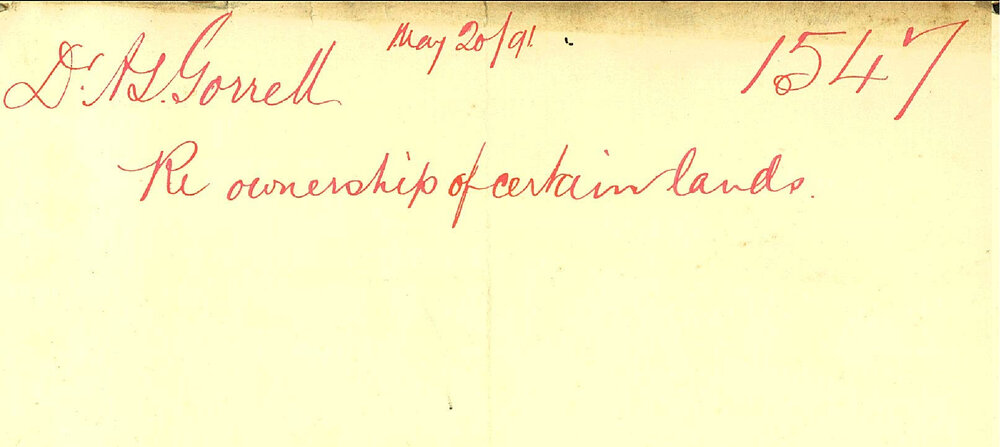 Dr. A S. Gorrell May 20/91. 1547
Re ownership of certain lands.